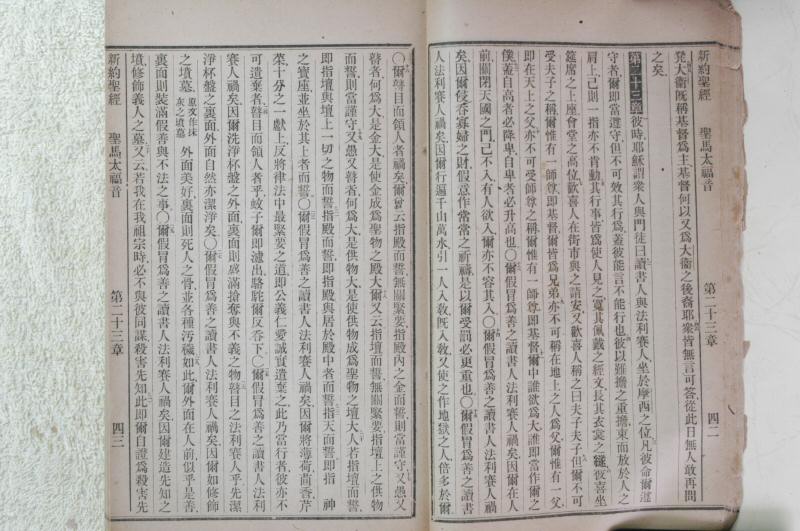 新約聖經 聖馬太福音 第二十三章 四二
大衛旣稱基督爲主基督何以又爲大衛之後裔耶衆皆無言可答從此日無人敢再問
之矣
第二十三章 彼時耶穌謂衆人與門徒曰讀書人與法利賽人坐於摩西之位凡彼命爾遵
守者爾即當遵守但不可效其行爲蓋彼能言不能行也彼以難擔之重擔束而放於人之
肩上己則一指亦不肯動其行事皆爲使人見之寬其佩戴之經文長其衣裳之繸彼喜坐
筵席之上座會堂之高位歡喜人在街市與之請安又歡喜人稱之曰夫子夫子但爾不可
受夫子之稱爾惟有一師尊即基督爾皆爲兄弟亦不可稱在地上之人爲父爾惟有一父
即在天上之父亦不可受師尊之稱爾惟有一師尊即基督爾中誰欲爲大誰即當作爾之
僕蓋自高者必降卑自卑者必升高也〇爾假冒爲善之讀書人法利賽人禍矣因爾在人
前關閉天國之門己不入有人欲入爾亦不容其入〇爾假冒爲善之讀書人法利賽人禍
矣因爾侵呑寡婦之財假意作常常之祈禱是以爾受罰必更重也〇爾假冒爲善之讀書
人法利賽人禍矣因爾行遍千山萬水引一人入敎旣入敎又使之作地獄之人倍多於爾
〇爾瞽目而領人者禍矣爾曾云指殿而誓無關緊要指殿內之金而誓則當謹守又愚又
瞽者何爲大是金大是使金成爲聖物之殿大爾又云指壇而誓無關緊要指壇上之供物
而誓則當謹守又愚又瞽者何爲大是供物大是使供物成爲聖物之壇大人若指壇而誓
即指壇與壇上一切之物而誓指殿而誓即指殿與居於殿中者而誓指天而誓即指 神
之寶座並坐於其上者而誓〇爾假冒爲善之讀書人法利賽人禍矣因爾將薄荷茴香芹
菜十分之一獻上反將律法中最緊要之道即公義仁愛誠實遺棄之此乃當行者彼亦不
可遺棄者瞽目而領人者乎蚊子爾即濾出駱駝爾反呑下〇爾假冒爲善之讀書人法利
賽人禍矣因爾洗淨杯盤之外面裏面則盛滿搶奪與不義之物瞽目之法利賽人乎先潔
淨杯盤之裏面外面自然亦潔淨矣〇爾假冒爲善之讀書人法利賽人禍矣因爾如修飾
之墳墓原文作抹灰之墳墓外面美好裏面則死人之骨並各種污穢如此爾外面在人前似乎是善
裏面則裝滿假善與不法之事〇爾假冒爲善之讀書人法利賽人禍矣因爾建造先知之
墳修飾義人之墓又云若我在我祖宗時必不與彼同謀殺害先知此即爾自證爲殺害先
新約聖經 聖馬太福音 第二十三章 四三